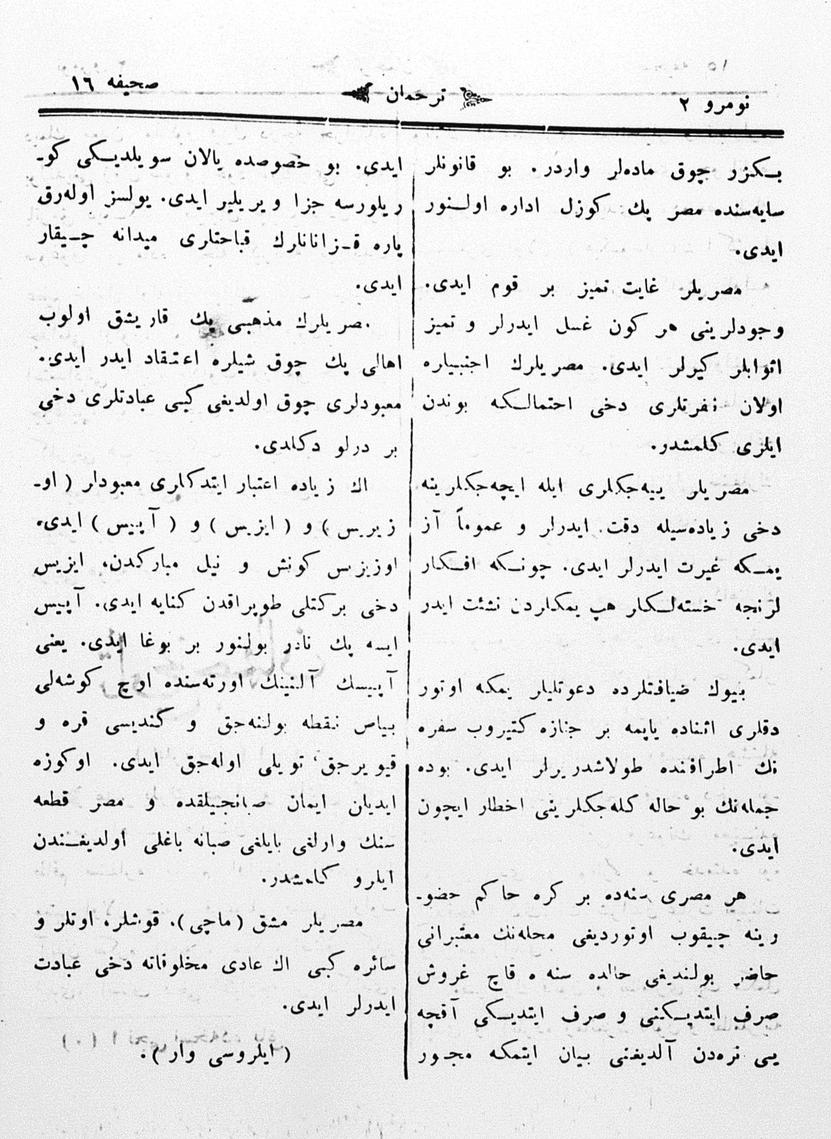 نومرو ٢
ترجمان
صحيفه ١٦
بكزر چوق ماده‌لر واردر. بو قانونلر
سايه‌سنده مصر پك كوزل اداره اولنور
ايدى.
مصريلر غايت تميز بر قوم ايدى.
وجودلرينى هر كون غسل ايدرلر و تميز
اثوابلر كيرلر ايدى. مصريلرك اجنبياره
اولان نفرتلرى دخى احتمالكه بوندن
ايلرى كلمشدر.
مصريلر ييه‌جكلرى ايله ايچه‌جكلرينه
دخى زياده‌سيله دقت ايدرلر و عموماً آز
يمكه غيرت ايدرلر ايدى. چونكه افكار
لرنجه خسته‌لكلر هپ يمكلردن نشئت ايدر
ايدى.
بيوك ضيافتلرده دعوتليلر يمكه اوتور
دقلرى اثناده ياپمه بر جنازه كتيروب سفره
نك اطرافنده طولاشديررلر ايدى. بوده
جمله‌نك بو حاله كله‌جكلرينى اخطار ايچون
ايدى.
هر مصرى سنه‌ده بر كره حاكم حضو-
رينه چيقوب اوتورديغى محله‌نك معتبرانى
حاضر بولنديغى حالده سنه ه قاچ غروش
صرف ايتديكنى و صرف ايتديكى آقچه
يى نره‌دن آلديغنى بيان ايتمكه مجبور
ايدى. بو خصوصده يالان سويلديكى كو-
ريلورسه جزا ويريلير ايدى. يولسز اوله‌رق
پاره قزانانلرك قباحتلرى ميدانه چيقار
ايدى.
مصريلرك مذهبى پك قاريشق اولوب
اهالى پك چوق شيلره اعتقاد ايدر ايدى.
معبودلرى چوق اولديغى كبى عبادتلرى دخى
بر درلو دكلدى.
اك زياده اعتبار ايتدكلرى معبودلر (او-
زيريس) و (ايزيس) و (آپيس) ايدى.
اوزيزيس كونش و نيل مباركدن، ايزيس
دخى بركتلى طوپراقدن كنايه ايدى. آپيس
ايسه پك نادر بولنور بر بوغا ايدى. يعنى
آپيسك آلنينك اورته‌سنده اوچ كوشه‌لى
بياض نقطه بولنه‌جق و كنديسى قره و
قيويرجق تويلى اوله‌جق ايدى. اوكوزه
ايديلن ايمان صبانجيلقده و مصر قطعه
سنك وارلغى بايلغى صبانه باغلى اولديغندن
ايلرو كلمشدر.
مصريلر مشق (ماچى)، قوشلر، اوتلر و
سائره كبى اك عادى مخلوقاته دخى عبادت
ايدرلر ايدى.
(ايلروسى وار).